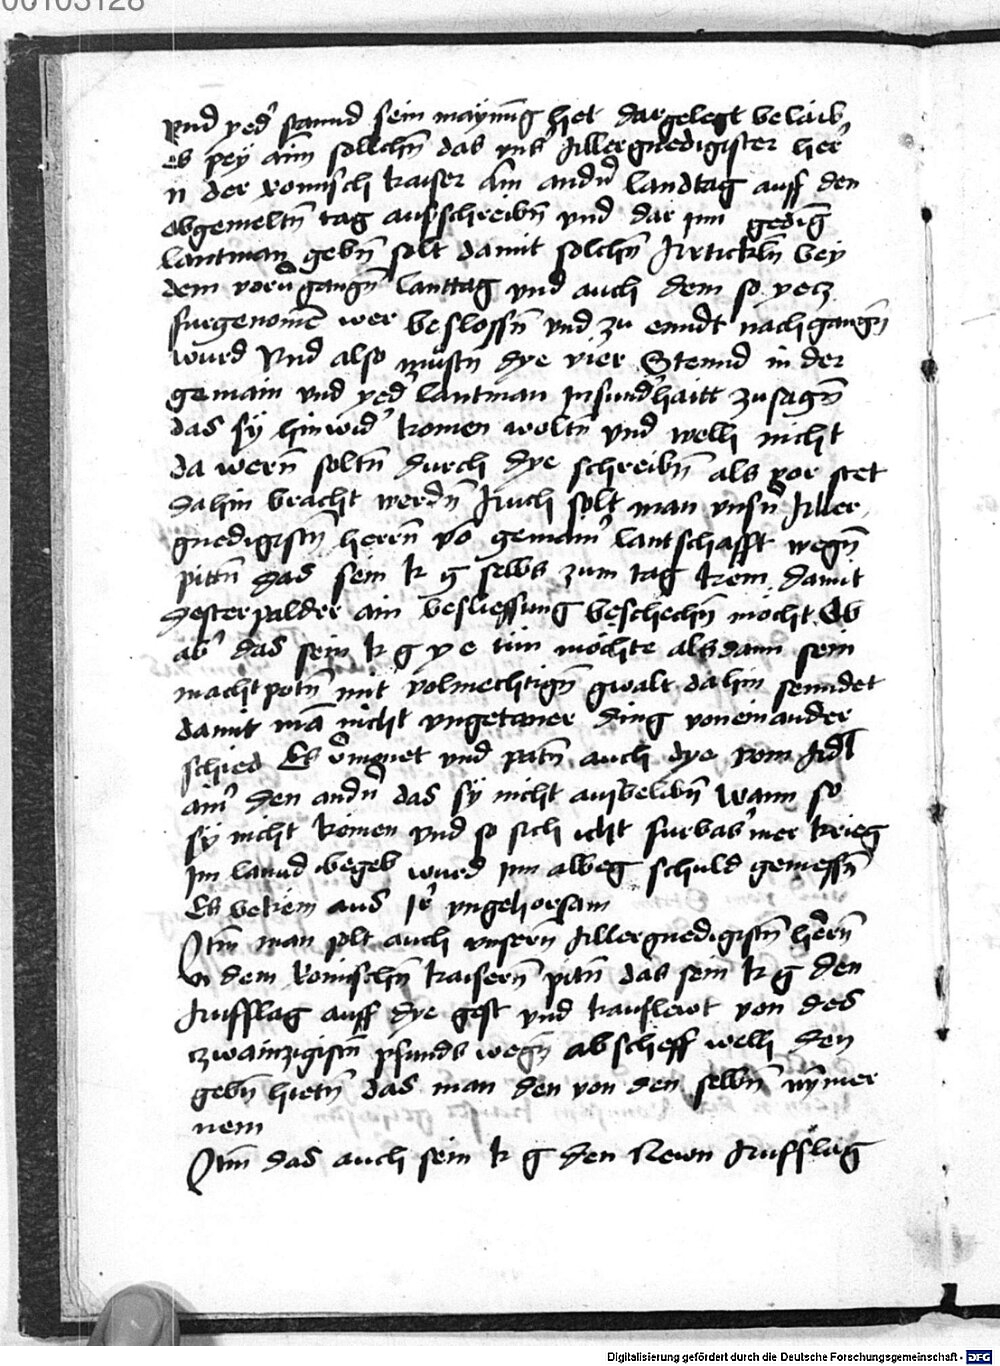 00103128
Vnd yed' stannd sein maynung het dargelegt belaib
es pey aim sollchn das vns' Allergnedigister her
n der Romisch kaiser ain andn landtag auff den
obgemeltn tag ausschreibn vnd dar Inn
lantman gebn solt damit solchn Artickln bey
dem vorgangn lanttag vnd auch dem so yecz
furgenomen wer beslossn vnd zu enndt nachgangn
wurd Vnd also mustn dye vier Stennd in der
gemain vnd yed' lantman Insundhaitt zusagn
das sy hinwid' komen woltn vnd welh nicht
da wern soltn durch dye schreibn als vor stet
dahin bracht werdn Auch solt man vnsn Aller
gnedigistn herrn vo gemain' lantschafft wegn
pittn das sein k g selbs zum tag kem damit
dester palder ain besliessung beschechn mocht Ob
ab' das sein k g ye nit mochte alsdann sein
machtpotn mit volmechtign gwalt dahin senndet
damit ma nicht vngetaner ding voneinander
schied Es vnd patn auch dye vom Adl
ain' den andn das sy nicht ausbelibn Wann so
sy nicht komen vnd so sich icht furbas' mer krieg
Im lannd begeb wurd Im albeg schuld gemessn
Es bekem aus Ir' vngehorsam
Itm man solt auch vnsern Allergnedigistn herrn
n dem Romischn kaisern pitn das sein k g den
Aufslag auff dye gest vnd kauflewt von des
czwainzigistn pfunds wegn abscheff welh den
gebn hietn das man den von den selbn nymer
nem
Itm das auch sein k g den Newn Aufslag
Digitalisierung gefördert durch die Deutsche Forschungsgemeinschaft - DFG